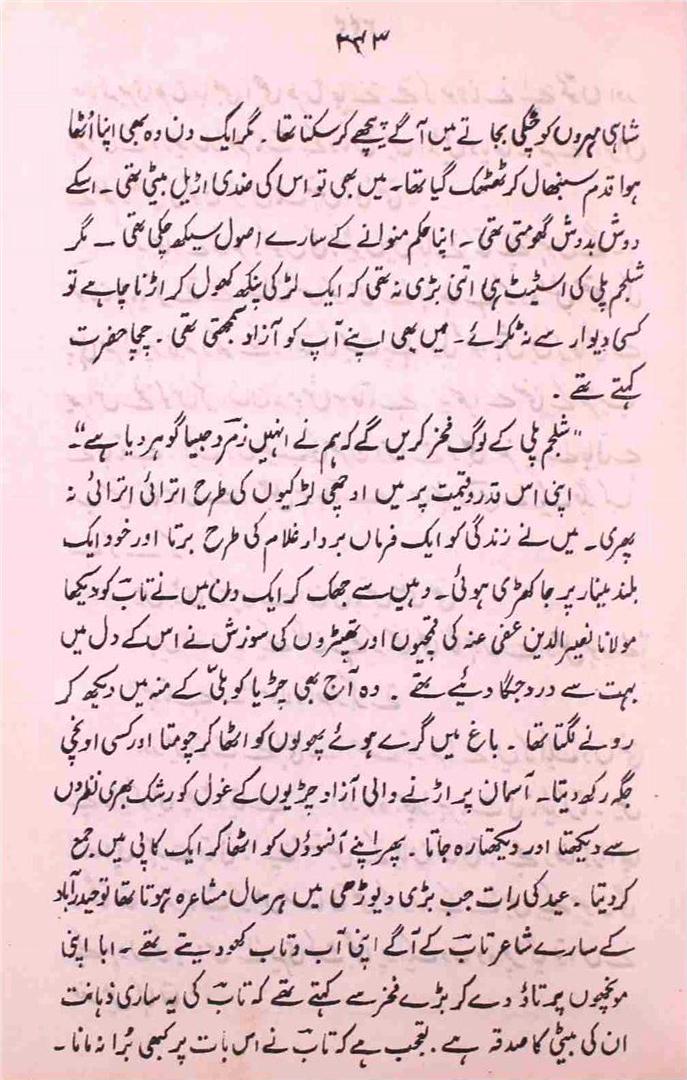 ۲۳۳
شاہی مہروں کو چٹکی بجاتے میں آگے پیچھے کرسکتا تھا ۔ مگر ایک دن وہ بھی اپنا اُٹھا
ہوا قدم سنبھال کر ٹھٹھک گیا تھا۔ میں بھی تو اس کی ضدی اڑیل بیٹی تھی۔ اسکے
دوش بدوش گھومتی تھی ۔ اپنا حکم منوانے کے سارے اصول سیکھ چکی تھی — مگر
شلجم پلی کی اسٹیٹ ہی اتنی بڑی نہ تھی کہ ایک لڑکی پنکھ کھول کر اڑنا چاہے تو
کسی دیوار سے نہ ٹکرائے۔ میں بھی اپنے آپ کو آزاد سمجھتی تھی ۔ چچا حضرت
کہتے تھے ۔
"شلجم پلی کے لوگ فخر کریں گے کہ ہم نے انہیں زمرد جیسا گوہر دیا ہے"۔
اپنی اس قدر و قیمت پر میں اوچھی لڑکیوں کی طرح اترائی اترائی نہ
پھری۔ میں نے زندگی کو ایک فرماں بردار غلام کی طرح برتا اور خود ایک
بلند مینار پر جا کھڑی ہوئی۔ وہیں سے جھک کر ایک دن میں نے تابؔ کو دیکھا
مولانا نصیرالدین عفی عنہ کی قمچیوں اور تھپیڑوں کی سوزش نے اس کے دل میں
بہت سے درد جگا دئیے تھے ۔ وہ آج بھی چڑیا کو بلّی کے منہ میں دیکھ کر
رونے لگتا تھا ۔ باغ میں گرے ہوئے پھولوں کو اٹھا کر چومتا اور کسی اونچی
جگہ رکھ دیتا۔ آسمان پر اڑنے والی آزاد چڑیوں کے غول کو رشک بھری نظروں
سے دیکھتا اور دیکھتا رہ جاتا ۔ پھر اپنے آنسوؤں کو اٹھا کر ایک کاپی میں جمع
کردیتا ۔ عید کی رات جب بڑی دیوڑھی میں ہر سال مشاعرہ ہوتا تھا تو حیدرآباد
کے سارے شاعر تابؔ کے آگے اپنی آب و تاب کھو دیتے تھے ۔ ابا اپنی
مونچھوں پر تاؤ دے کر بڑے فخر سے کہتے تھے کہ تابؔ کی یہ ساری ذہانت
ان کی بیٹی کا صدقہ ہے ۔ تعجب ہے کہ تابؔ نے اس بات پر کبھی بُرا نہ مانا ۔